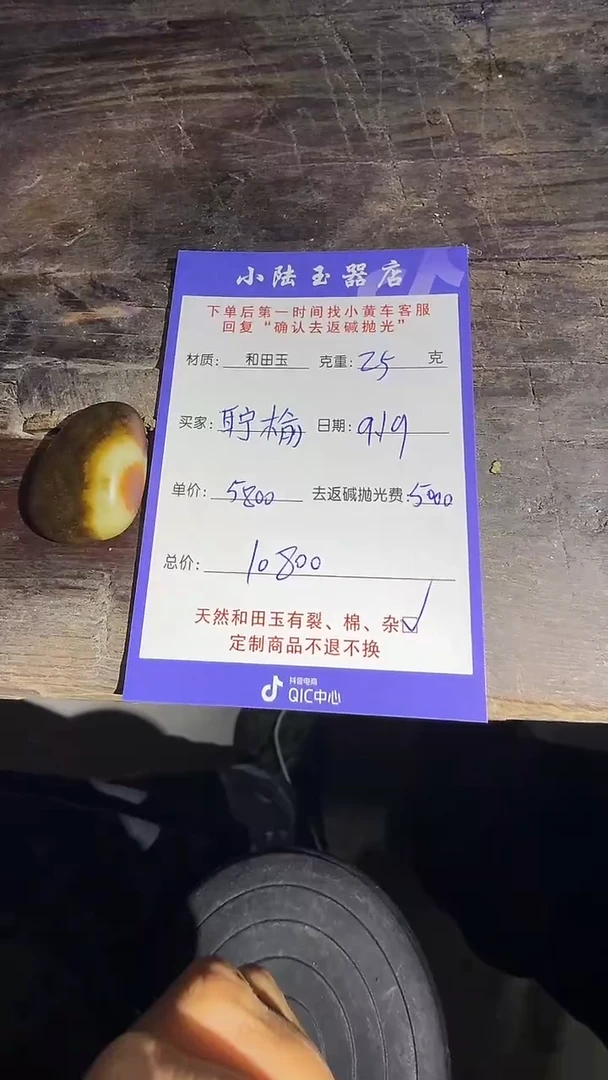 小陆玉器店
下单后第一时间找小黄车客服
回复“确认去返碱抛光”
材质: 和田玉 克重: 25 克
买家: 日期: 9/9
单价: 5800 去返碱抛光费: 5000
总价: 10800
天然和田玉有裂、棉、杂☑
定制商品不退不换
抖音电商
QIC中心